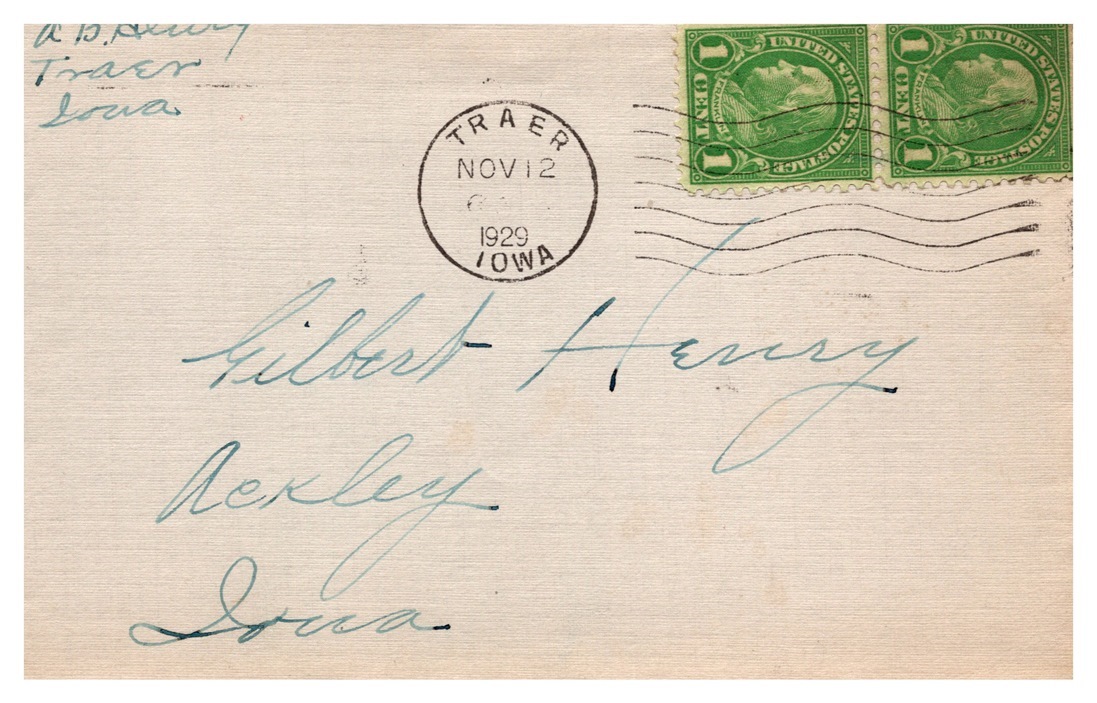 A B. Henry
Traer
Iowa
TRAER
NOV 12
1929
IOWA
1 CENT 1
UNITED STATES POSTAGE
1 CENT 1
UNITED STATES POSTAGE
Gilbert Henry
Ackley
Iowa